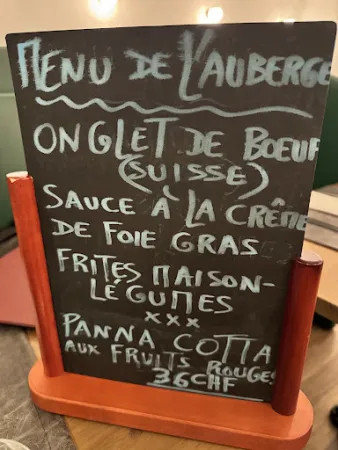 MENU DE L'AUBERGE
ONGLET DE BOEUF
(SUISSE)
SAUCE À LA CRÊME
DE FOIE GRAS
FRITES MAISON-
LÉGUMES
xxx
PANNA COTTA
AUX FRUITS ROUGES
36CHF